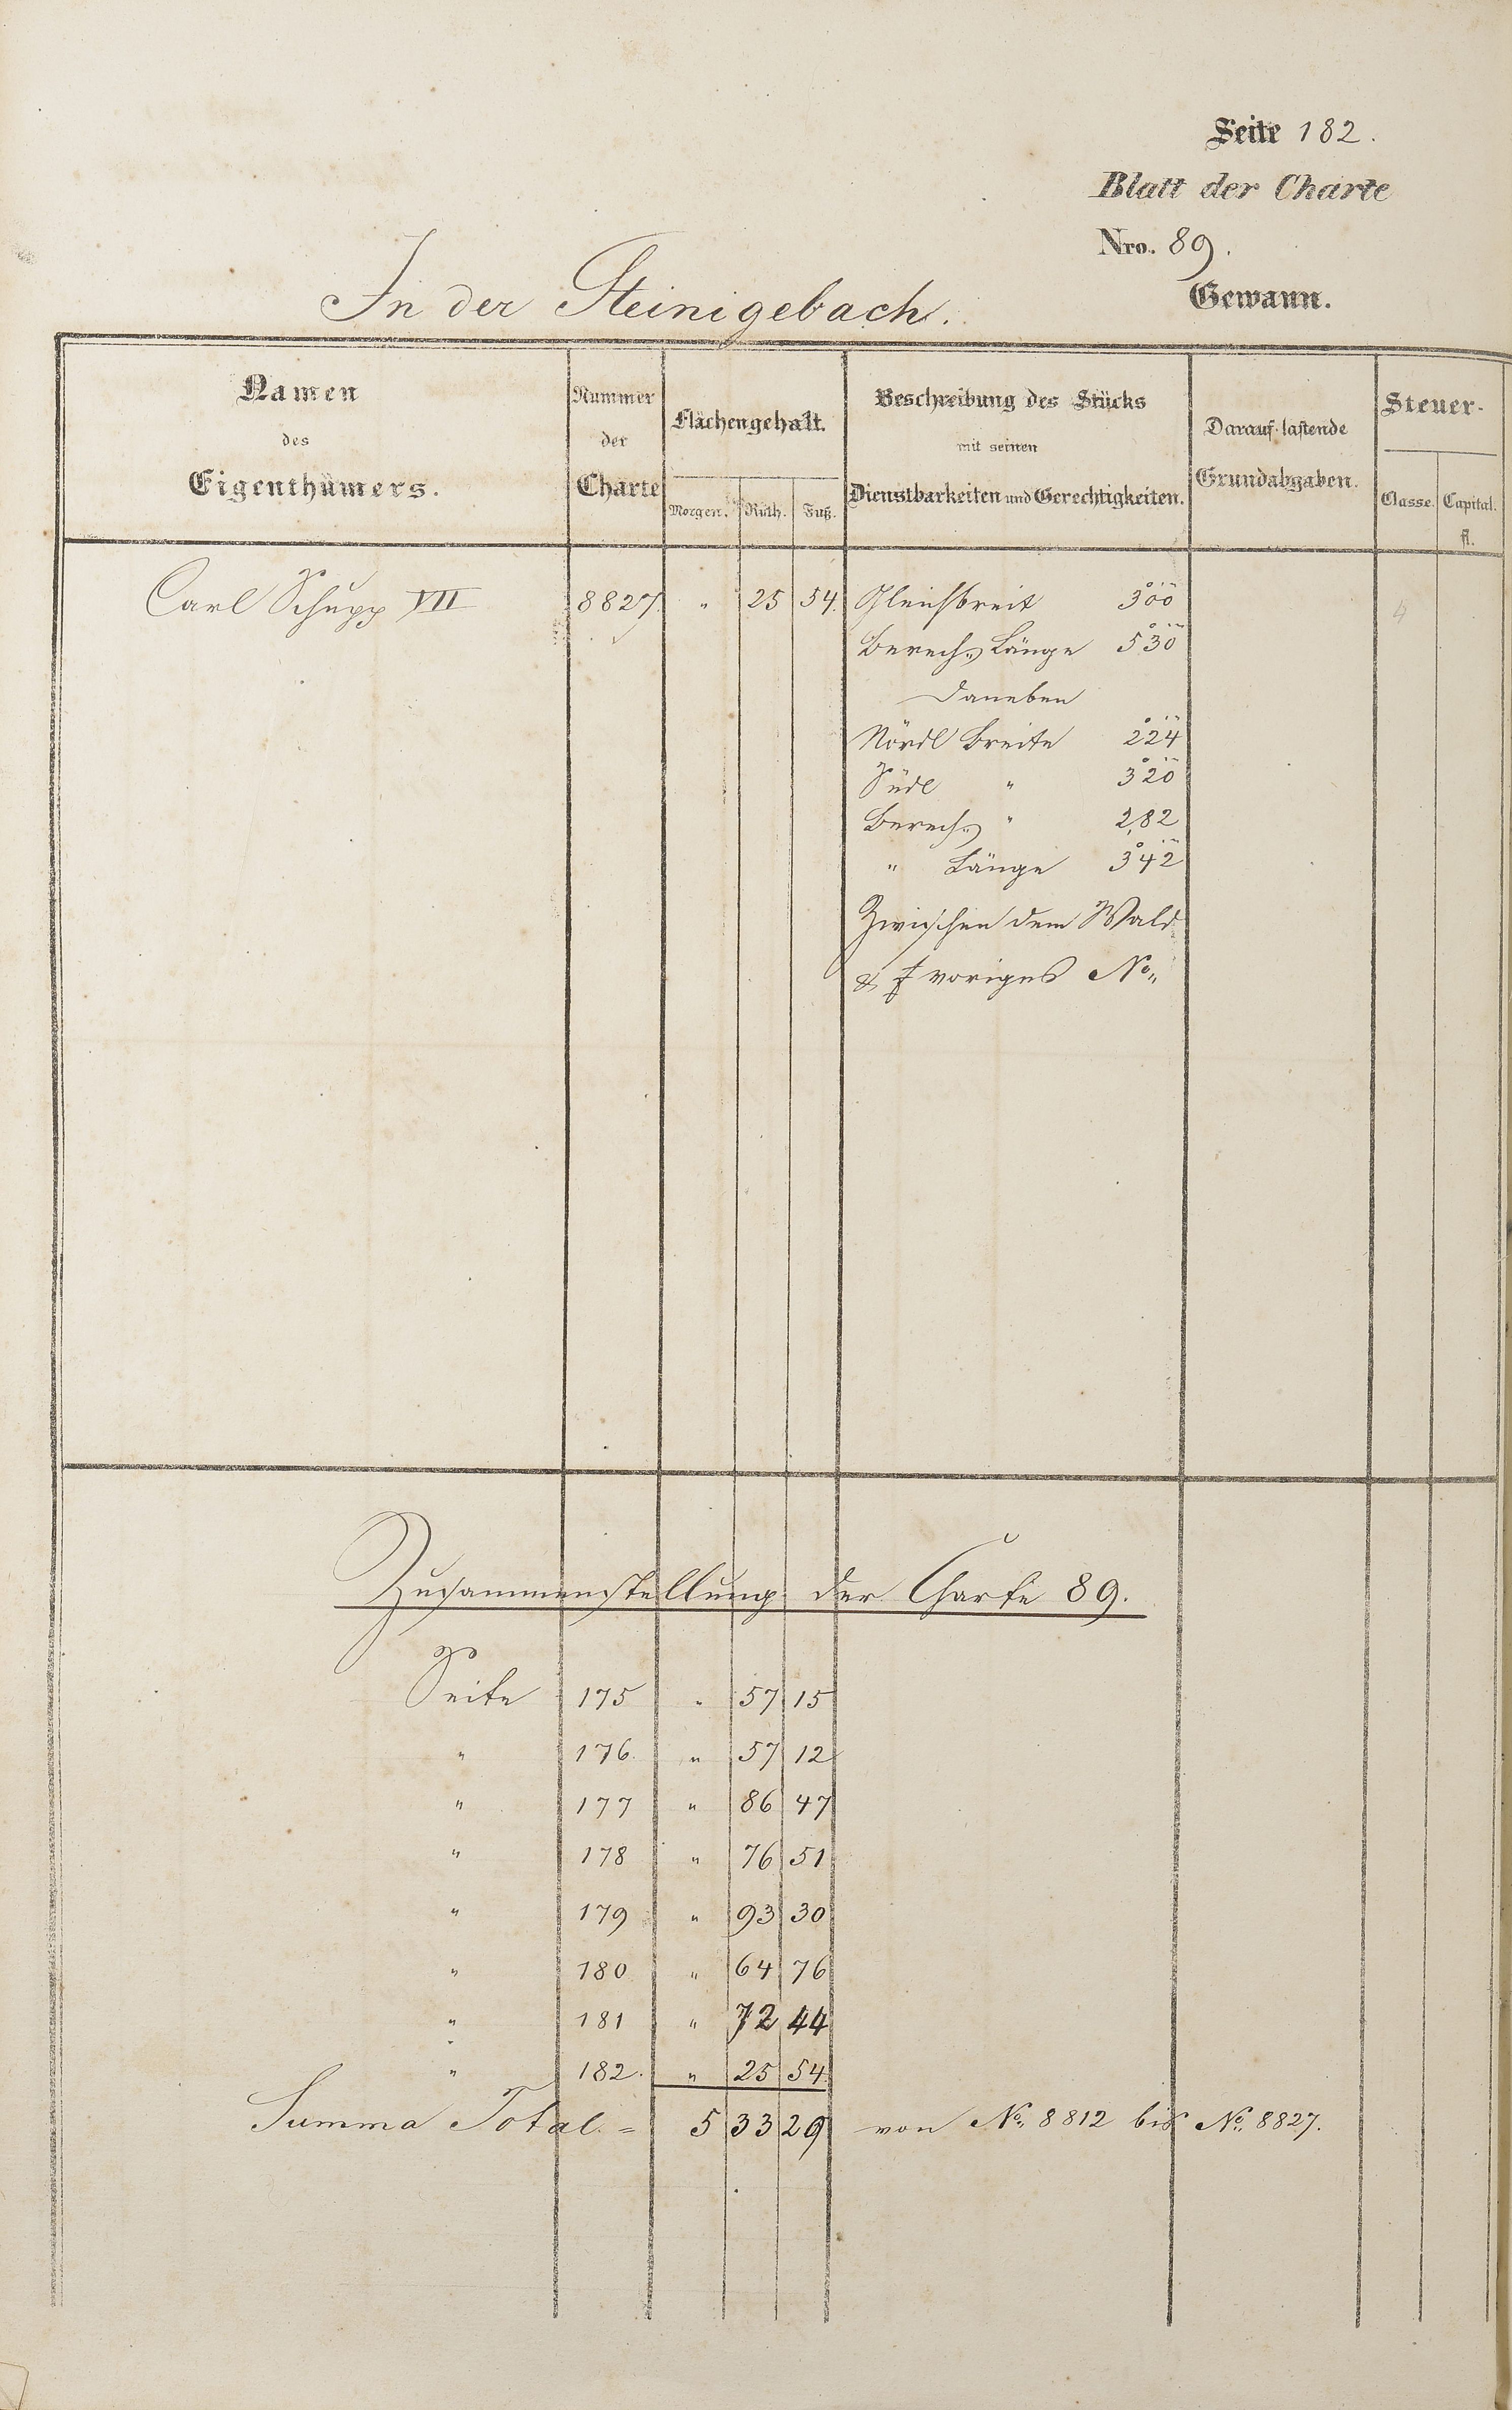 Seite 182.
Blatt der Charte
Nro. 89.
In der Steinigebach. Gewann.
Namen des Eigenthümers.
Nummer der Charte
Flächengehalt.
Morgen. Ruth. Fuß.
Beschreibung des Stücks mit seinen Dienstbarkeiten und Gerechtigkeiten.
Darauf lastende Grundabgaben.
Steuer-
Classe. Capital. fl.
Carl Schupp VII 8827 " 25 54. Gleichbreit 3°0'0" 4
Berech. Länge 5°3'0"
Daneben
Nördl Breite 2°2'4"
Südl " 3°2'0"
Berech. " 2,82
" Länge 3°4'2"
Zwischen dem Wald
& voriges No.
Zusammenstellung der Charte 89.
Seite 175 " 57 15
" 176. " 57 12
" 177 " 86 47
" 178 " 76 51
" 179 " 93 30
" 180 " 64 76
" 181 " 72 44
" 182. " 25 54
Summa Total. = 5 33 29 von No. 8812 bis No. 8827.